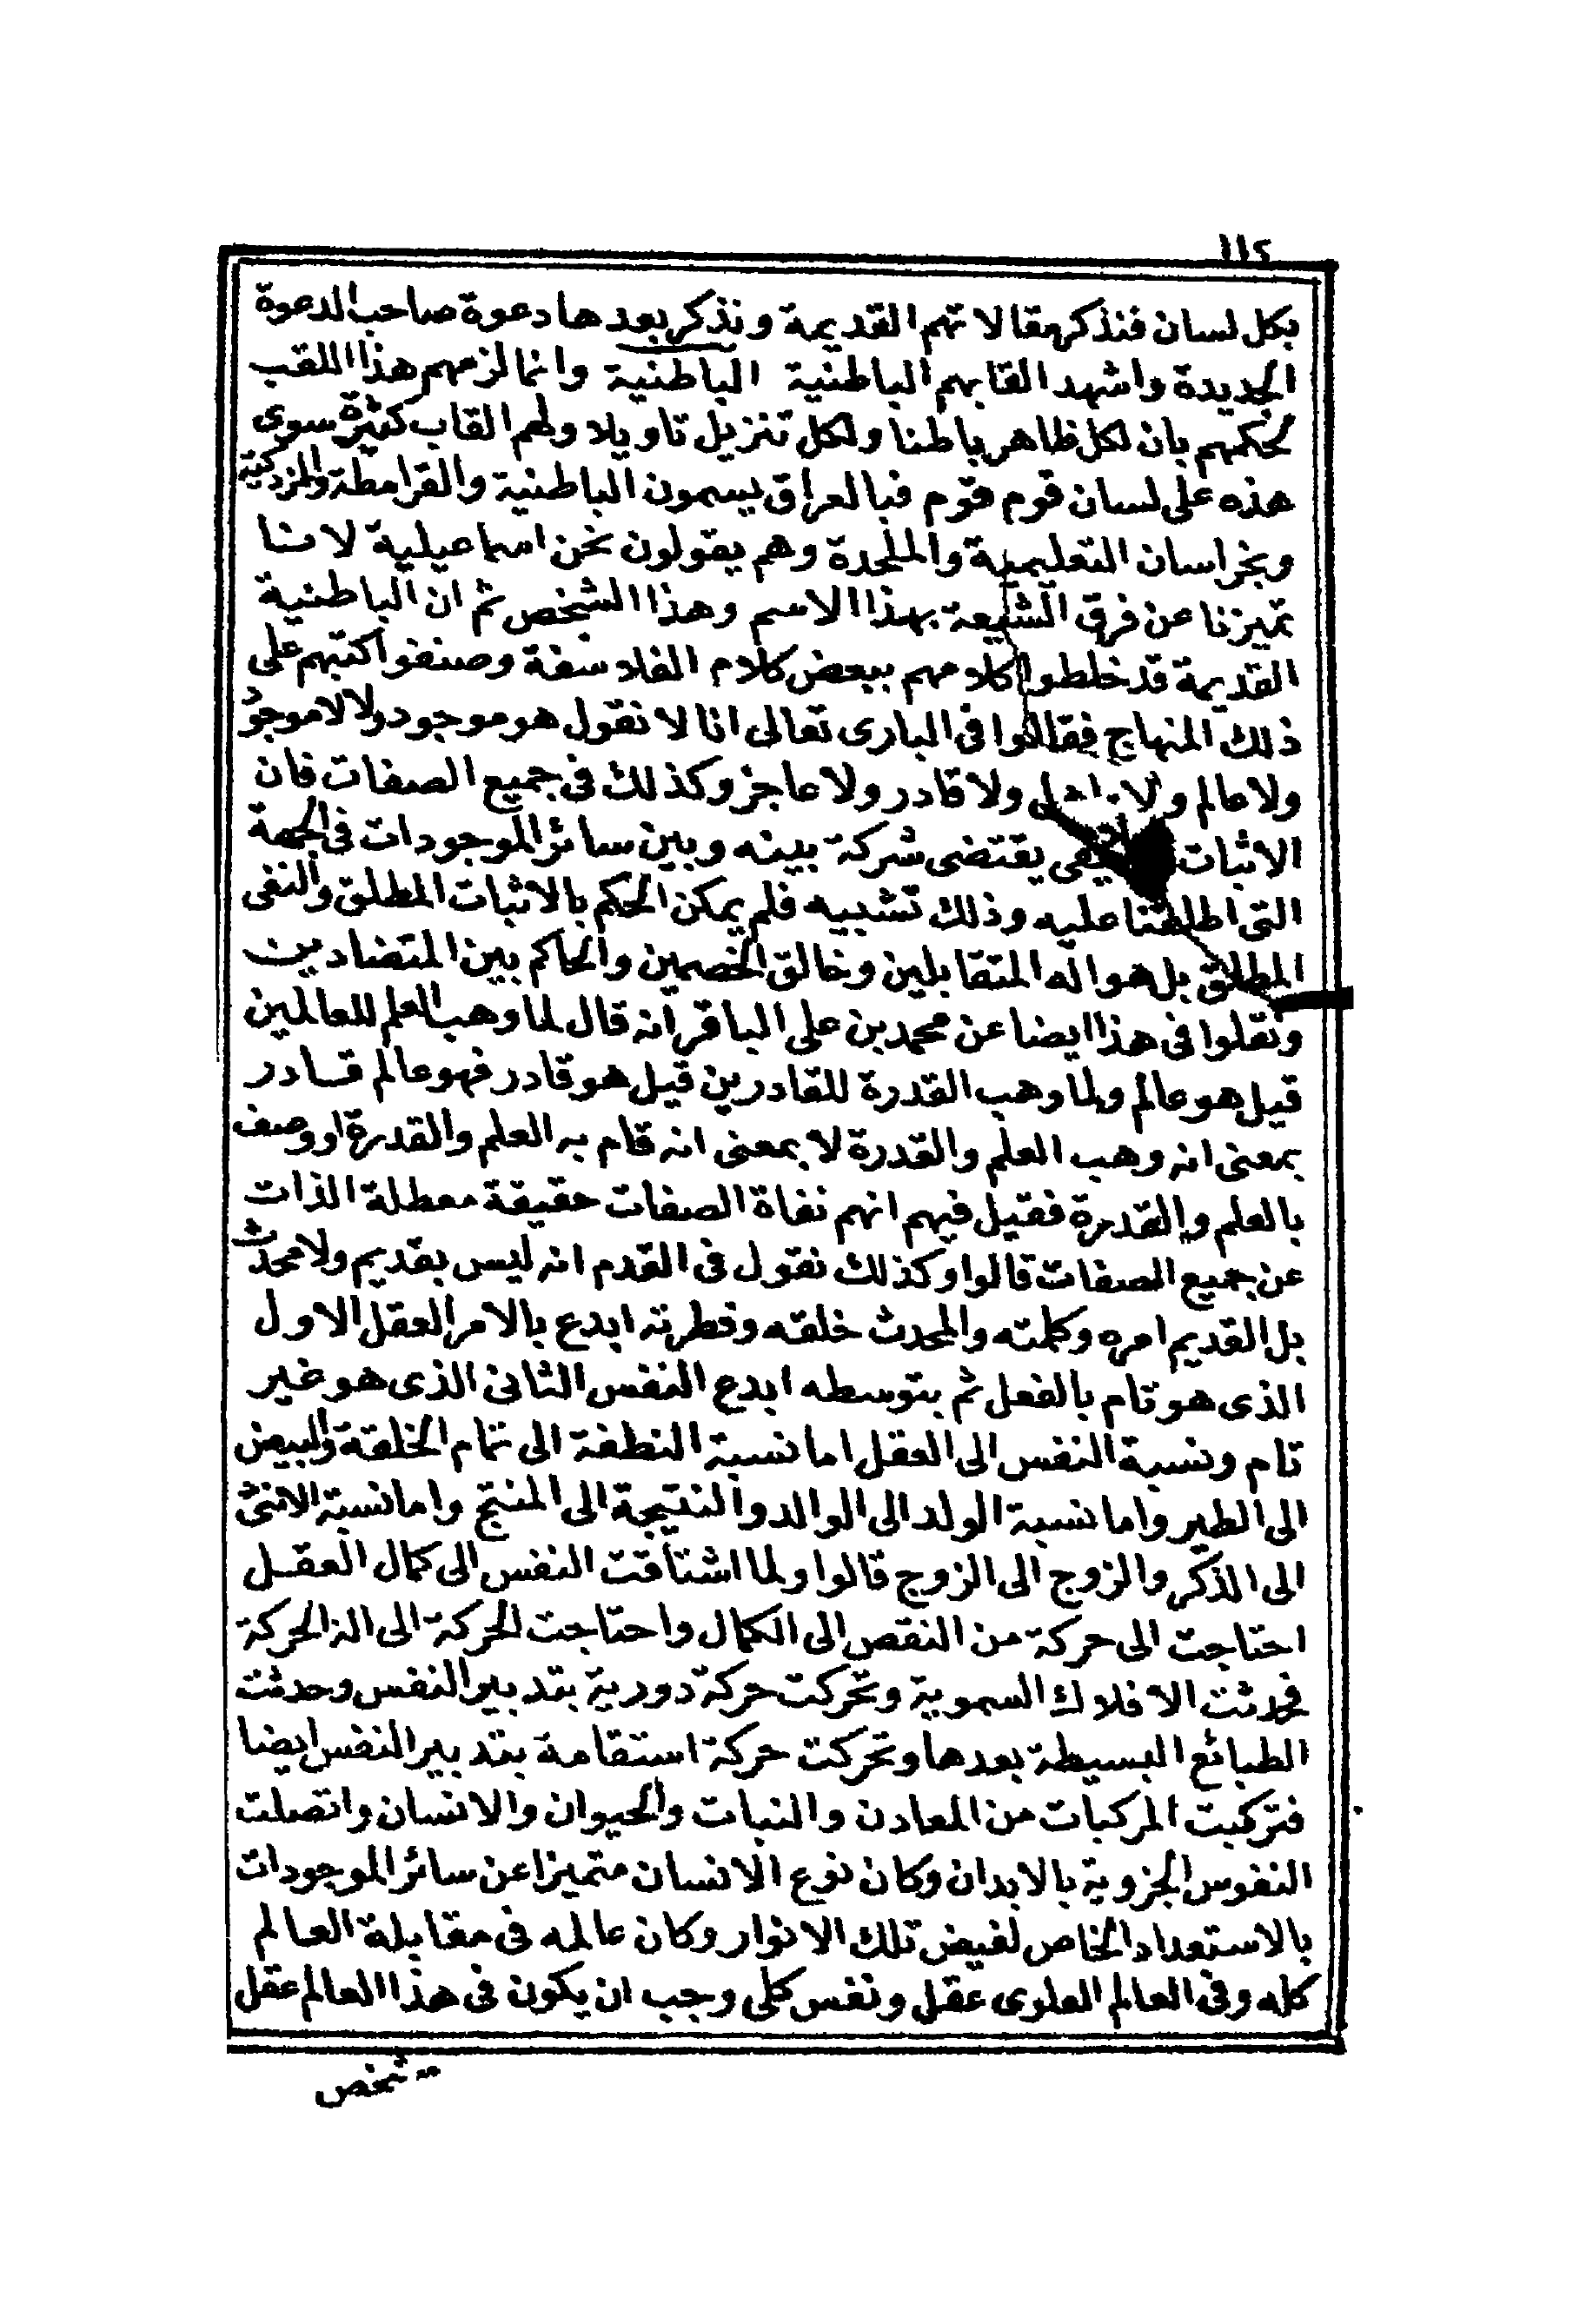 ١١٤
بكل لسان فنذكر مقالاتهم القديمة ونذكر بعدها دعوة صاحب الدعوة
الجديدة واشهد القابهم الباطنية الباطنية وانما لزمهم هذا اللقب
لحكمهم بان لكل ظاهر باطنا ولكل تنزيل تاويلا ولهم القاب كثيرة سوى
هذه على لسان قوم قوم فبالعراق يسمون الباطنية والقرامطة والمزدكية
وبخراسان التعليمية والملحدة وهم يقولون نحن اسماعيلية لاننا
تميزنا عن فرق الشيعة بهذا الاسم وهذا الشخص ثم ان الباطنية
القديمة قد خلطوا كلامهم ببعض كلام الفلاسفة وصنفوا كتبهم على
ذلك المنهاج فقالوا فى البارى تعالى انا لا نقول هو موجود ولا لا موجود
ولا عالم ولا ولا قادر ولا عاجز وكذلك فى جميع الصفات فان
الاثبات يقتضى شركة بينه وبين سائر الموجودات فى الجهة
التى اطلقنا عليه وذلك تشبيه فلم يمكن الحكم بالاثبات المطلق والنفى
المطلق بل هو اله المتقابلين وخالق الخصمين والحاكم بين المتضادين
ونقلوا فى هذا ايضا عن محمد بن على الباقر انه قال لما وهب العلم للعالمين
قيل هو عالم ولما وهب القدرة للقادرين قيل هو قادر فهو عالم قادر
بمعنى انه وهب العلم والقدرة لا بمعنى انه قام به العلم والقدرة او وصف
بالعلم والقدرة فقيل فيهم انهم نفاة الصفات حقيقة معطلة الذات
عن جميع الصفات قالوا وكذلك نقول فى القدم انه ليس بقديم ولا محدث
بل القديم امره وكلمته والمحدث خلقه وفطرته ابدع بالامر العقل الاول
الذى هو تام بالفعل ثم بتوسطه ابدع النفس الثانى الذى هو غير
تام ونسبة النفس الى العقل اما نسبة النطفة الى تمام الخلقة والبيض
الى الطير واما نسبة الولد الى الوالد والنتيجة الى المنتج واما نسبة الانثى
الى الذكر والزوج الى الزوج قالوا ولما اشتاقت النفس الى كمال العقل
احتاجت الى حركة من النقص الى الكمال واحتاجت الحركة الى الة الحركة
فحدثت الافلاك السموية وتحركت حركة دورية بتدبير النفس وحدثت
الطبائع البسيطة بعدها وتحركت حركة استقامة بتدبير النفس ايضا
فتركبت المركبات من المعادن والنبات والحيوان والانسان واتصلت
النفوس الجزوية بالابدان وكان نوع الانسان متميزا عن سائر الموجودات
بالاستعداد الخاص لفيض تلك الانوار وكان عالمه فى مقابلة العالم
كله وفى العالم العلوى عقل ونفس كلى وجب ان يكون فى هذا العالم عقل
شخص